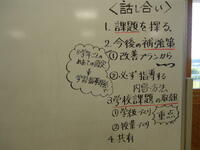 <話し合い>
1. 課題を探る。
2. 今後の補強策
① 改善プランから
② 必ず指導する
内容・方法
3 学校課題の取組
① 学校づくり
② 授業づくり
重点
4. 共有
学習